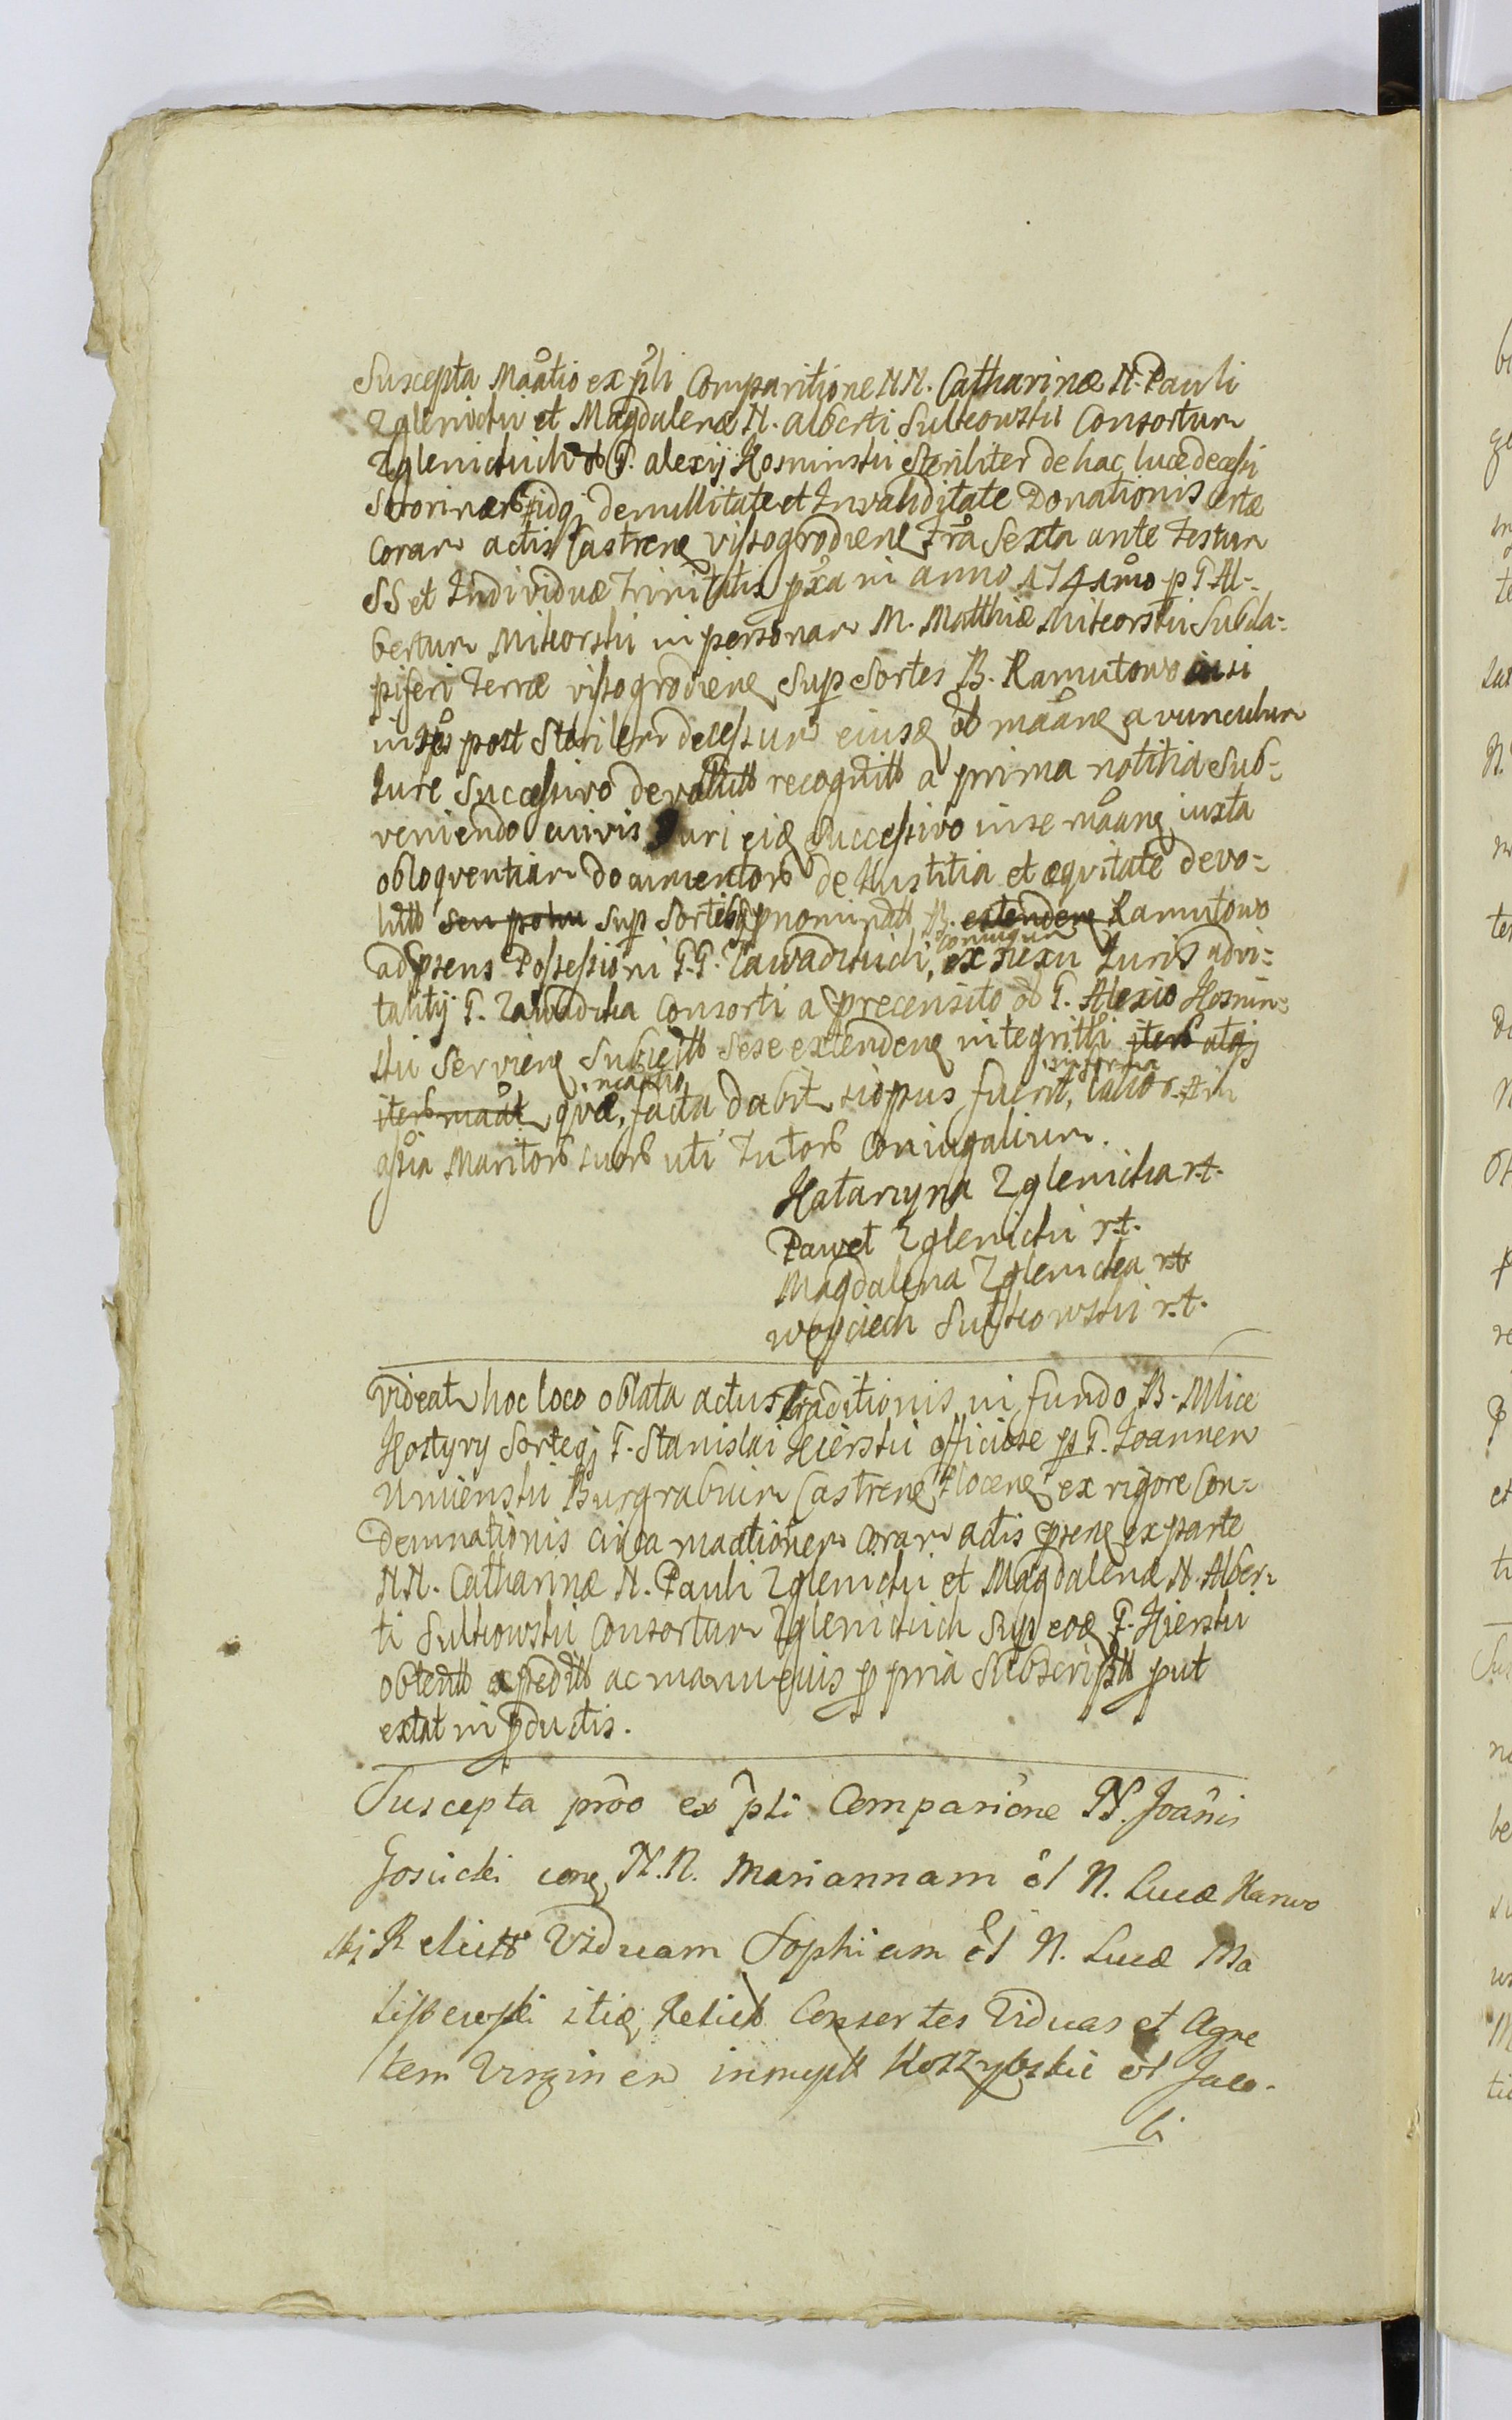 Suscepta Maãtio ex pli Comparitione NN. Catharinæ N. Pauli
Zglenicki et Magdalenæ N. alberti Sulkowski Consortum
Zglenickich ol G. alexij Kosminski Steriliter de hac luce decessi
Sororinarum idq; de nullitate et Invaliditate Donationis certæ
Coram actis Castren vissogrodien fra Sexta ante Festum
SS et Individuæ Trinitatis pxa in anno 1741mo p G Al-
bertum Mikorski in personam M. Matthiæ Mikorski Subda-
piferi Terræ vissogrodien Sup Sortes B. Ramutowo
post Sterilem decessum eiusd ol maãne avunculum
Iure Successivo devolutt recognitt a prima notitia Sub-
veniendo cuivis Iuri eid Successivo in se maãne iuxta
obloquentiam documentorum de Iustitia et æquitate devo-
lutt Sup Sortibq pnominatt B. extenden Ramutowo
ad psens Possessioni G.G. Zawadzkich, coniugum ex nexu Iuris advi-
talitij G. Zawadzka Consorti a precensito ol G. Alexio Kosmin-
ski Servien Subiectt Sese extenden integritti iterum atq;
iterum maãt quæ, maãtio facta dabit si opus fuerit, in forma latiori. Ad
assia Maritorum suorum uti Tutorum Coniugalium.
Katarzyna Zglenicka r.t.
Paweł Zglenicki r.t.
Magdalena Zglenicka r.t.
woyciech Sulkowski r.t.
Videat hoc loco oblata actus Traditionis in fundo B. Mlice
Kostyry Sorteq; G. Stanislai Kierski officiose p G. Joannem
Umienski Burgrabium Castren Plocen ex rigore Con-
demnationis circa maationem coram actis psen ex parte
NN. Catharinæ N. Pauli Zglenicki et Magdalenæ N. Alber-
ti Sulkowski Consortum Zglenickich Sup eod G. Kierski
obtentt expeditt ac manu ejus p pria Subscriptt put
extat in pductis.
Suscepta prõo ex pli Comparione N. Joãnis
Gosucki cong N.N. Mariannam ol N. Lucæ Karwo
ski Relictt Viduam Sophiam ol N. Lucæ Ma
itid Relict Consortes Viduas et Agne
tem Virginem innuptt Koszybskie ol Jaco-
bi